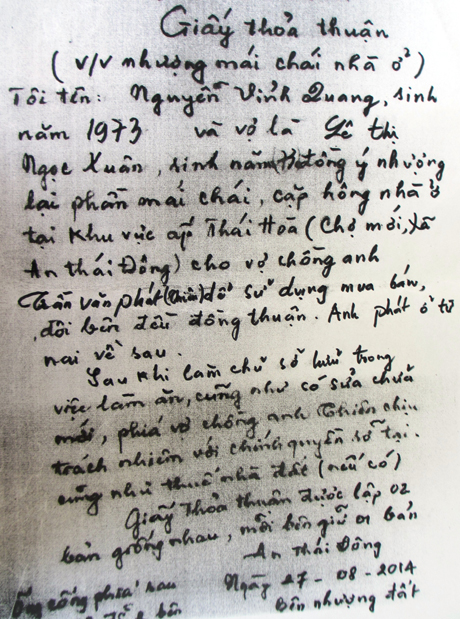 Giấy thỏa thuận
(v/v nhượng mái chái nhà ở)
Tôi tên: Nguyễn Vĩnh Quang, sinh
năm 1973 và vợ là Lê thị
Ngọc Xuân, sinh năm đồng ý nhượng
lại phần mái chái, cặp hông nhà ở
tại khu vực ấp Thái Hòa (Chợ mới, Xã
An thái Đông) cho vợ chồng anh
Trần văn phát (Thiên) để sử dụng mua bán,
đôi bên đều đồng thuận. Anh phát ở từ
nai về sau.
Sau khi làm chủ sở hữu trong
việc làm ăn, cũng như có sửa chữa
mới, phía vợ chồng anh Thiên chịu
trách nhiệm với chính quyền sở tại.
cũng như thuế nhà đất (nếu có)
Giấy thỏa thuận được lập 02
bản giống nhau, mỗi bên giữ 01 bản
An Thái Đông
Ngày 27-08-2014
Bên nhượng đất
cống phía sau
bên